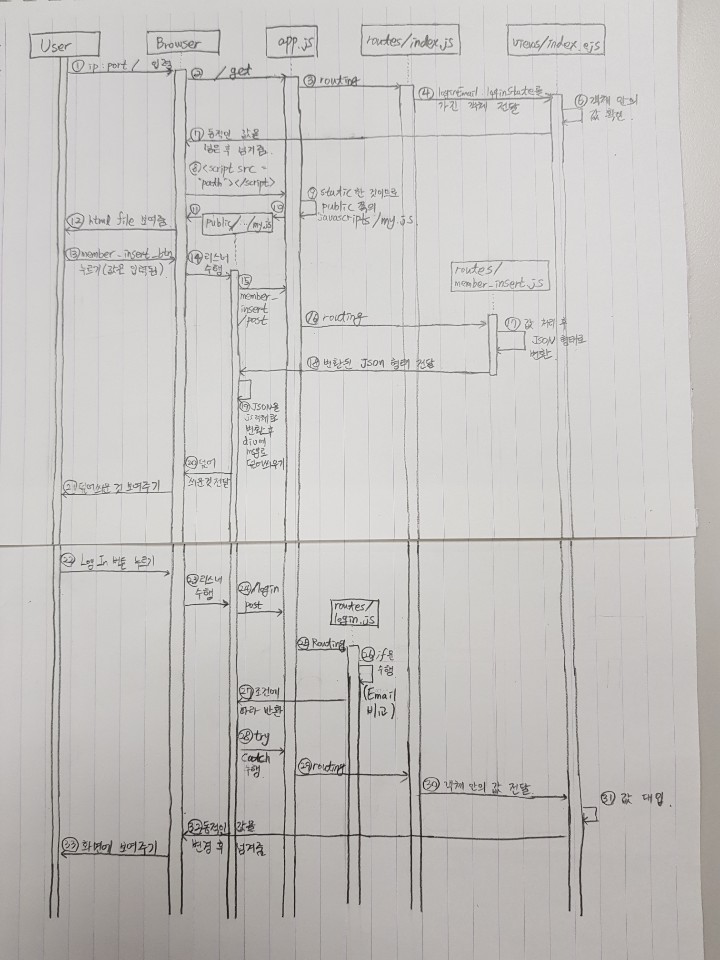 User
Browser
app.js
routes/index.js
views/index.ejs
① ip:port/ 입력
② /get
③ routing
④ loginEmail, loginState를
가진 객체 전달
⑥ 객체 안의
값 확인.
⑦ 동적인 값을
넣은 후 넘겨줌.
⑧ <script src =
"path"></script>
⑨ static한 것이므로
public 쪽의
javascripts/my.js.
⑩
⑪
public/../my.js
⑫ html file 보여줌
⑬ member_insert_btn
누르기(값은 입력됨)
⑭ 리스너
수행
⑮
member_
insert
/post
routes/
member_insert.js
⑯ routing
⑰ 값 처리 후
JSON 형태로
변환.
⑱ 변환된 Json 형태 전달
⑲ JSON을
js객체로
변환 후
덮어씌우기
⑳ 덮어
씌운것 전달
㉑ 덮어쓰운 것 보여주기
㉒ Log In 버튼 누르기
㉓ 리스너
수행
㉔ /login
post
routes/
login.js
㉕ Routing
㉖ if문
수행
(Email
비교)
㉗ 조건에
따라 반환
㉘ try
catch
수행
㉙ routing
㉚ 객체 안의 값 전달.
㉛ 값 대입.
㉜ 동적인 값을
변경 후 넘겨줌
㉝ 화면에 보여주기